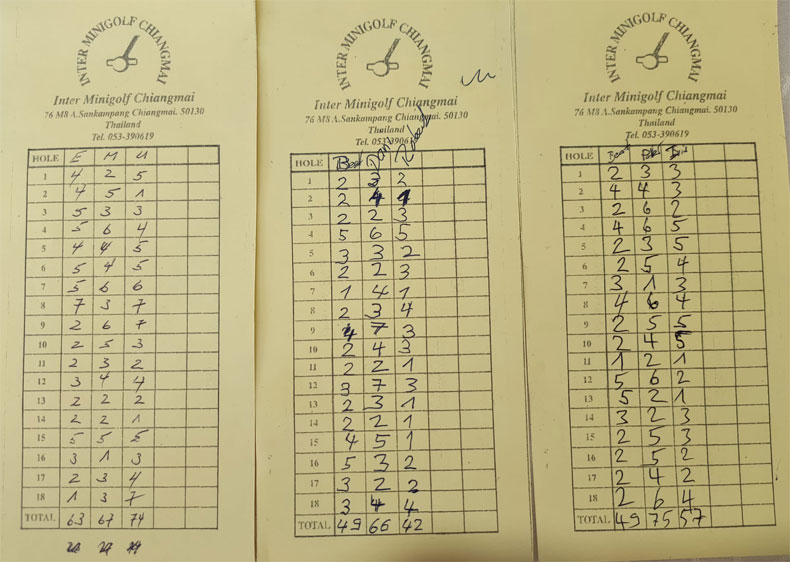 INTER MINIGOLF CHIANGMAI
Inter Minigolf Chiangmai
76 M8 A.Sankampang Chiangmai. 50130
Thailand
Tel. 053-390619
HOLE E M U
1 4 2 5
2 4 5 1
3 5 3 3
4 5 6 4
5 4 4 5
6 5 4 5
7 5 6 6
8 7 3 7
9 2 6 7
10 2 5 3
11 2 3 2
12 3 4 4
13 2 2 2
14 2 2 1
15 5 5 5
16 3 1 3
17 2 3 4
18 1 3 7
TOTAL 63 67 74
INTER MINIGOLF CHIANGMAI
Inter Minigolf Chiangmai
76 M8 A.Sankampang Chiangmai. 50130
Thailand
Tel. 053-390619
HOLE
1 2 3 2
2 2 4 4
3 2 2 3
4 5 6 5
5 3 3 2
6 2 2 3
7 1 4 1
8 2 3 4
9 4 7 3
10 2 4 3
11 2 2 1
12 3 7 3
13 2 3 1
14 2 2 1
15 4 5 1
16 5 3 2
17 3 2 2
18 3 4 4
TOTAL 49 66 42
INTER MINIGOLF CHIANGMAI
Inter Minigolf Chiangmai
76 M8 A.Sankampang Chiangmai. 50130
Thailand
Tel. 053-390619
HOLE
1 2 3 3
2 4 4 3
3 2 6 2
4 4 6 5
5 2 3 5
6 2 5 4
7 3 1 3
8 4 6 4
9 2 5 5
10 2 4 5
11 1 2 1
12 5 6 2
13 5 2 1
14 3 2 3
15 2 5 3
16 2 5 2
17 2 4 2
18 2 6 4
TOTAL 49 75 57